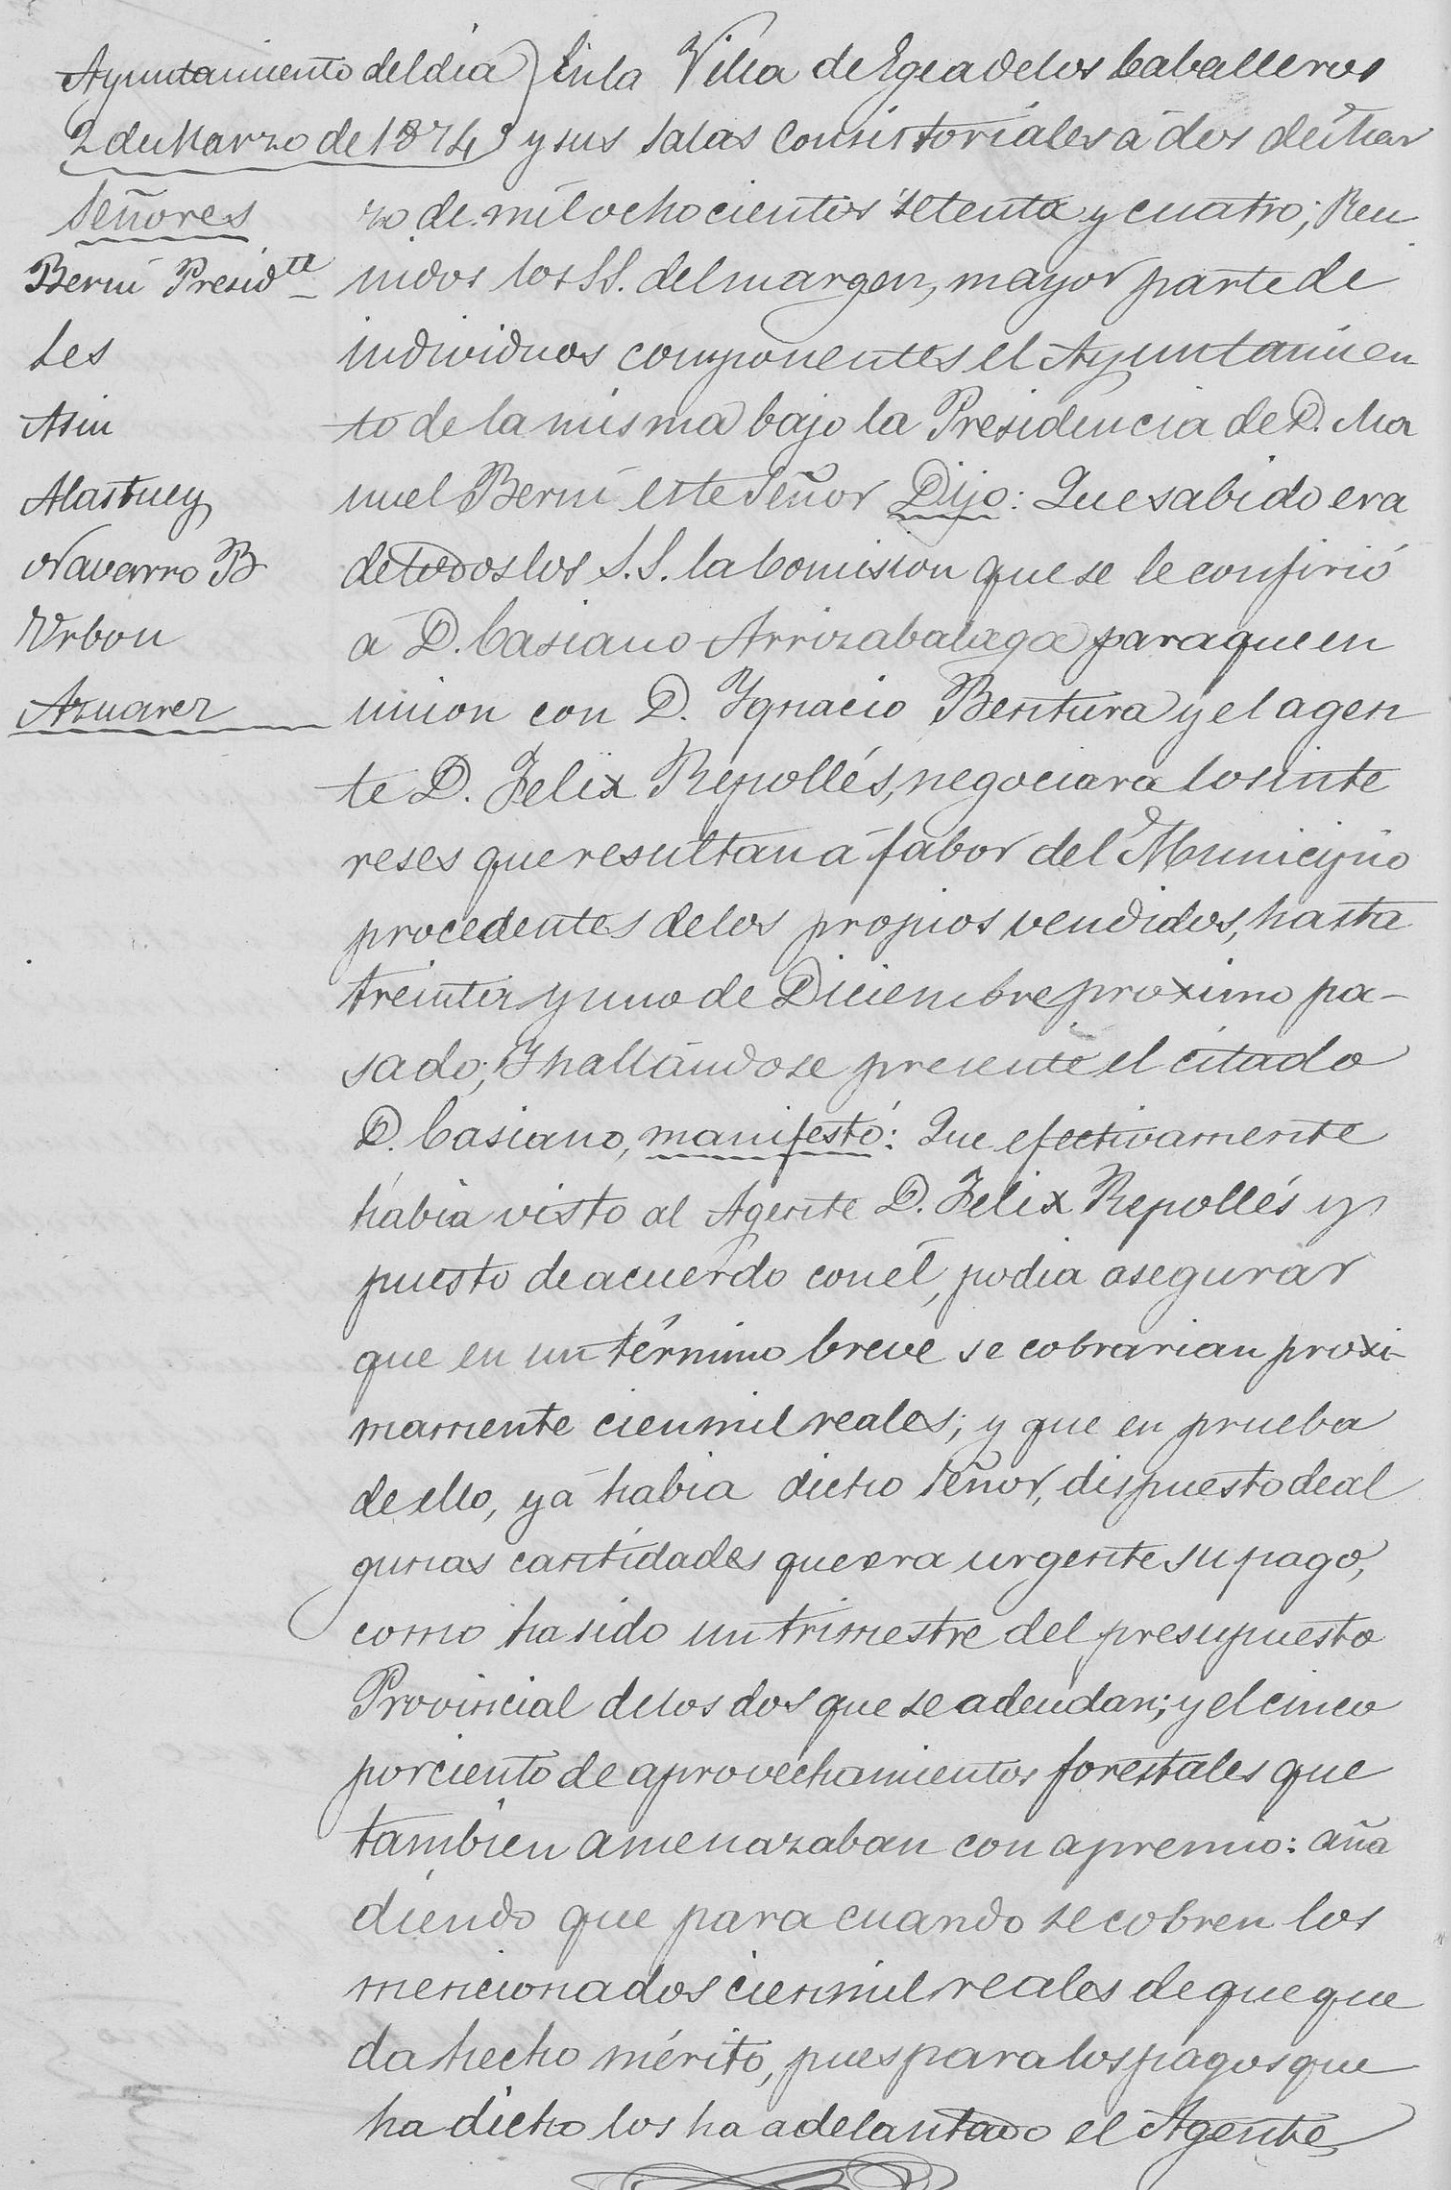 Ayuntamiento del dia
2 de Marzo de 1874
Señores
Berni Presid.te
Les
Asin
Alastuey
Navarro B
Urbon
Aznarez
En la Villa de Egea de los Caballeros
y sus salas consistoriales a dos de Mar
zo de mil ochocientos setenta y cuatro; Reu
nidos los SS. del margen, mayor parte de
individuos componentes el Ayuntamien
to de la misma bajo la Presidencia de D. Ma
nuel Berni este Señor Dijo: Que sabido era
de todos los S.S. la Comision que se le confirió
a D. Casiano Arrizabalaga para que en
union con D. Ygnacio Bentura y el agen
te D. Felix Repollés, negociara los inte
reses que resultan a fabor del Municipio
procedentes de los propios vendidos, hasta
treinta y uno de Diciembre proximo pa-
sado; Y hallándose presente el citado
D. Casiano, manifestó: Que efectivamente
habia visto al Agente D. Felix Repollés y
puesto de acuerdo con él, podia asegurar
que en un término breve se cobrarian proxi-
mamente cien mil reales; y que en prueba
de ello, yá habia dicho Señor, dispuesto de al
gunas cantidades que era urgente su pago,
como ha sido un trimestre del presupuesto
Provincial de los dos que se adeudan; y el cinco
por ciento de aprovechamientos forestales que
tambien amenazaban con apremio: aña
diendo que para cuando se cobren los
mencionados cien mil reales de que que
da hecho mérito, pues para los pagos que
ha dicho los ha adelantado el Agente